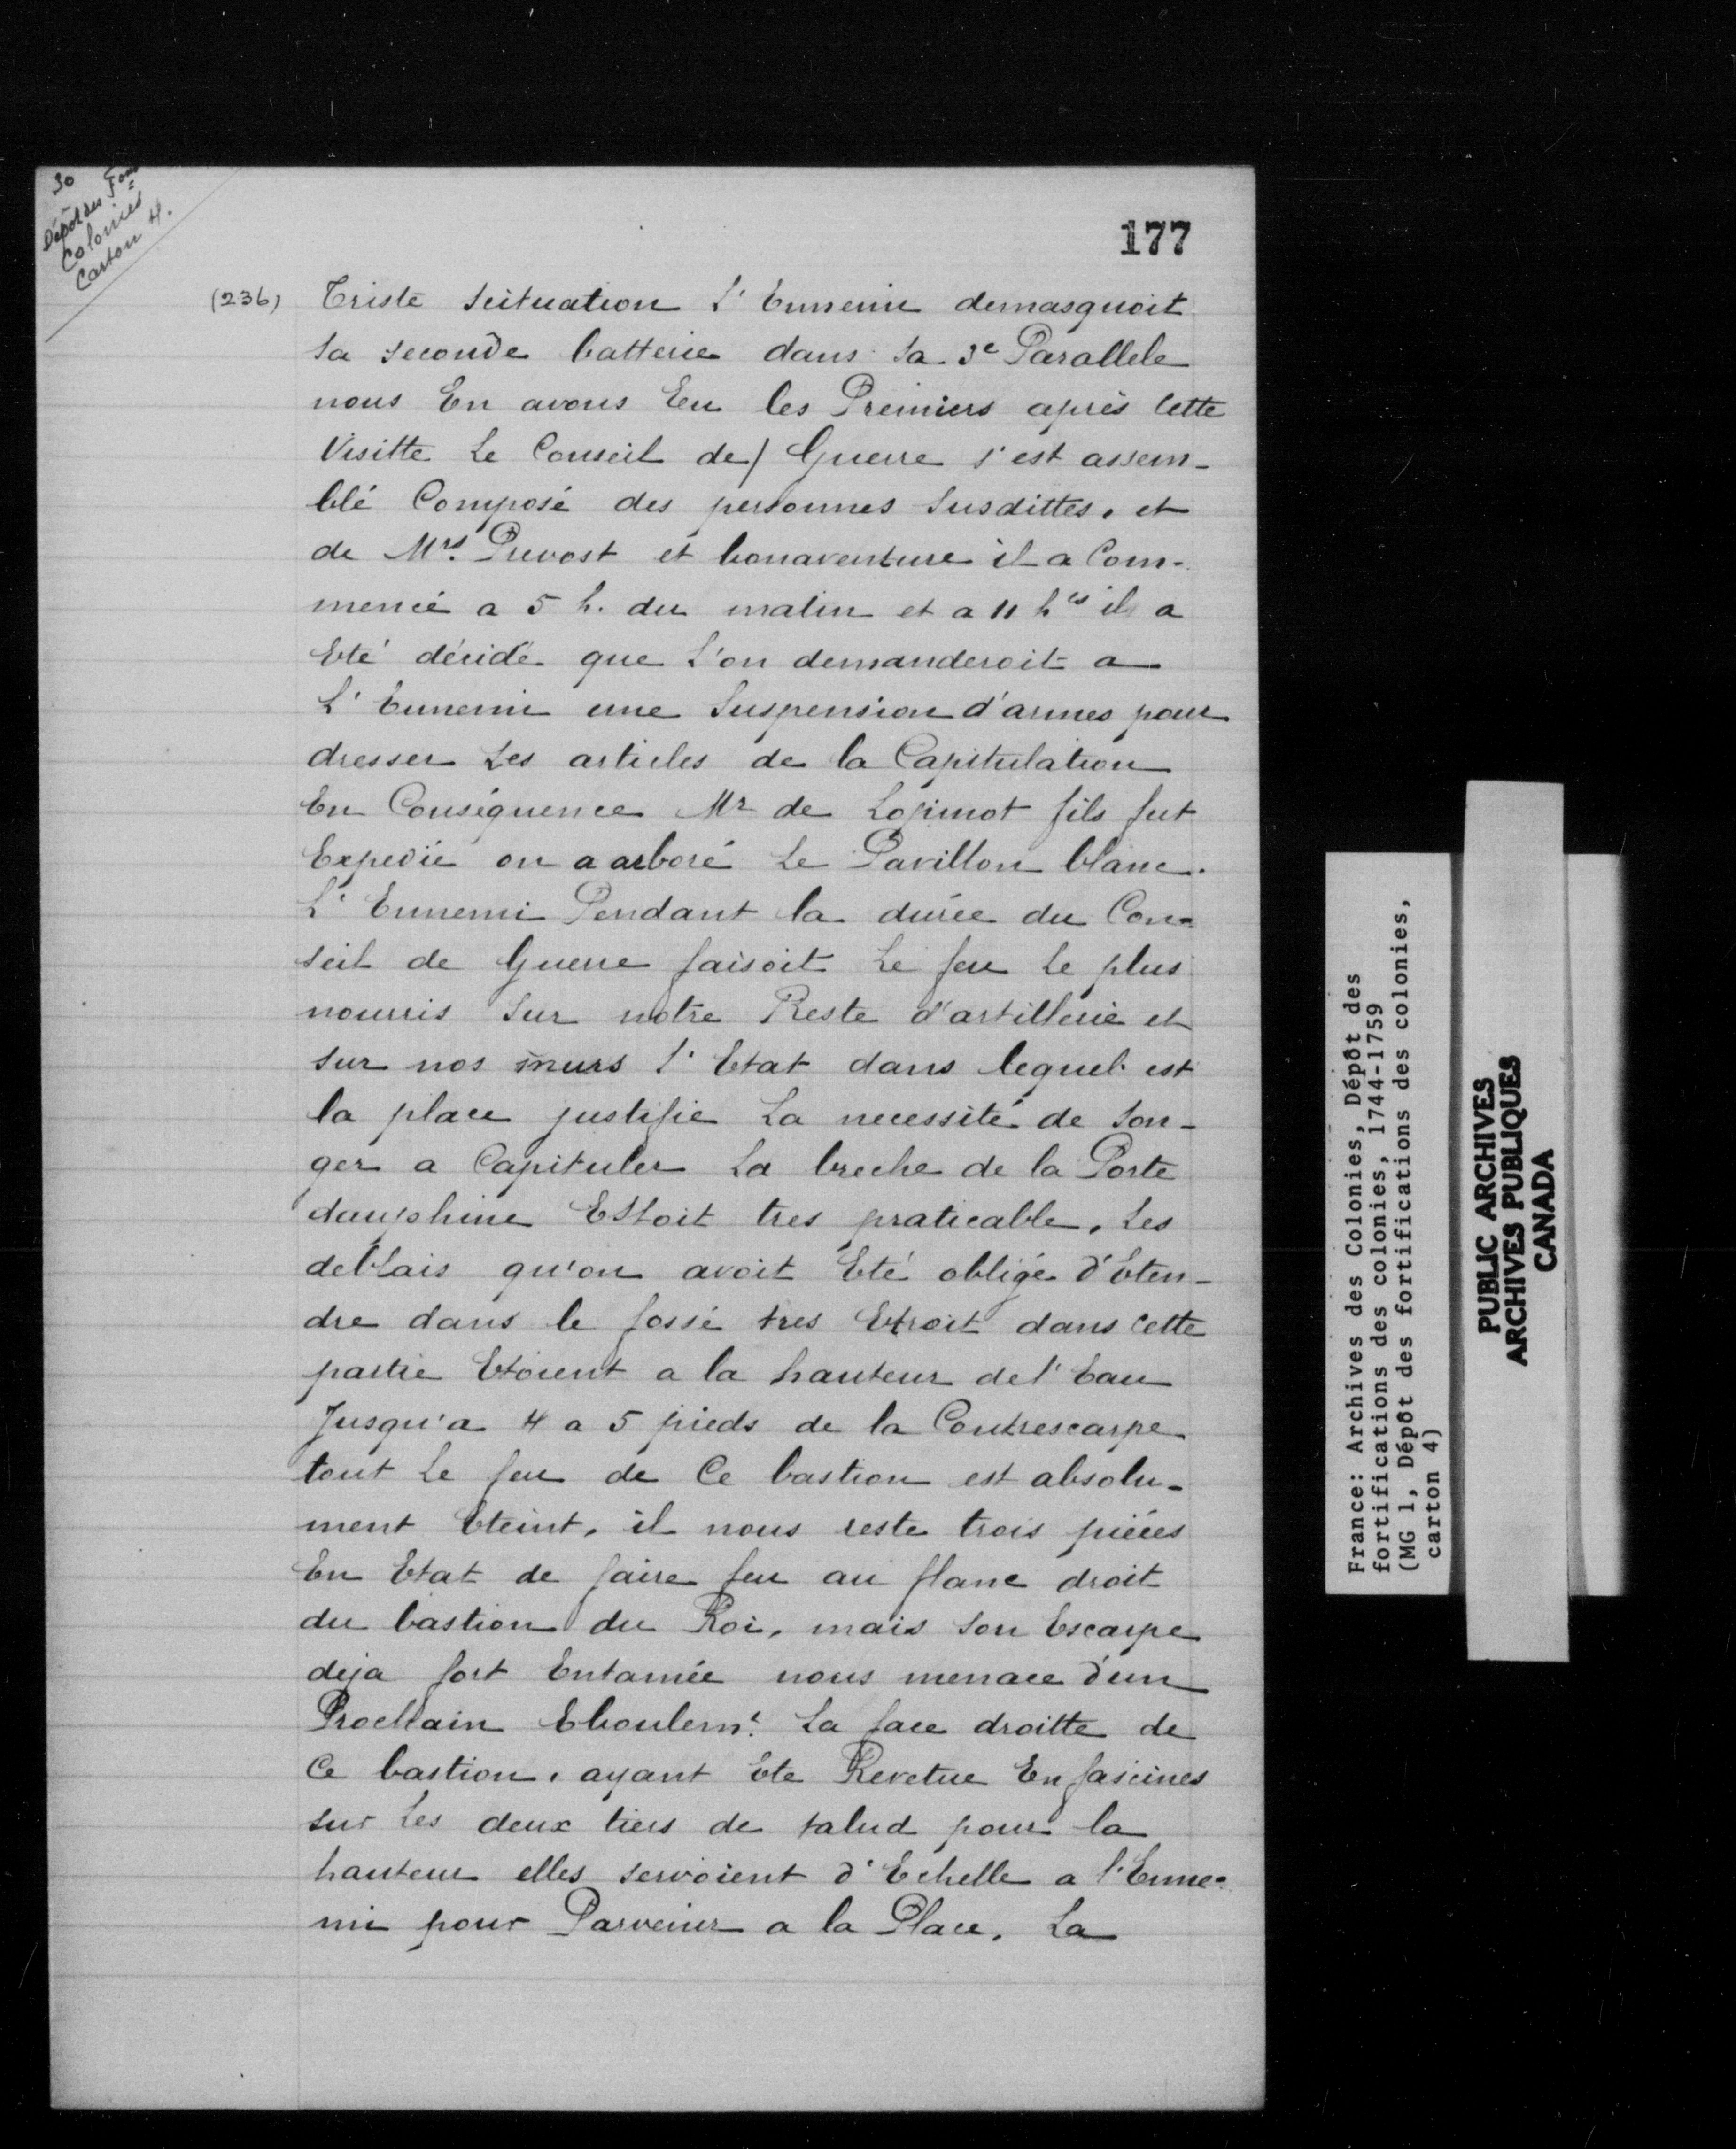 30
Dépôt des Fon
Colonies
Carton 4.
177
(236) Triste Scituation L'Ennemi demasquoit
sa seconde batterie dans sa 3e Parallele
nous En avons Eu les Premiers après Cette
Visitte Le Conseil de/ Guerre s'est assem-
blé Composé des personnes Susdittes, et
de Mrs. Prevost et bonaventure il a Com-
mencé a 5 h. du matin et a 11 hes il a
Eté décidé que L'on demanderoit a
L'Ennemi une Suspension d'armes pour
dresser Les articles de la Capitulation
En Conséquence Mr de Lopinot fils fut
Expedié on a arboré Le Pavillon blanc.
L'Ennemi Pendant la durée du Con-
seil de Guerre faisoit Le feu Le plus
nourris Sur notre Reste d'artillerie et
sur nos murs l'Etat dans lequel est
la place justifie La necessité de Son-
ger a Capituler La breche de la Porte
dauphine Estoit tres praticable, Les
deblais qu'on avoit Eté obligé d'Eten-
dre dans le fossé tres Etroit dans Cette
partie Etoient a la hauteur de l'Eau
Jusqu'a 4 a 5 pieds de la Contrescarpe
tout Le feu de Ce bastion est absolu-
ment Eteint, il nous reste trois piéces
En Etat de faire feu au flanc droit
du bastion du Roi, mais Son Escarpe
deja fort Entamée nous menace d'un
Prochain Eboulemt. La face droitte de
Ce bastion, ayant Ete Revetue En fascines
sur Les deux tiers de talud pour la
hauteur elles servoient d'Echelle a l'Enne-
mi pour Parvenir a la Place, La
France: Archives des Colonies, Dépôt des
fortifications des colonies, 1744-1759
(MG 1, Dépôt des fortifications des colonies,
carton 4)
PUBLIC ARCHIVES
ARCHIVES PUBLIQUES
CANADA